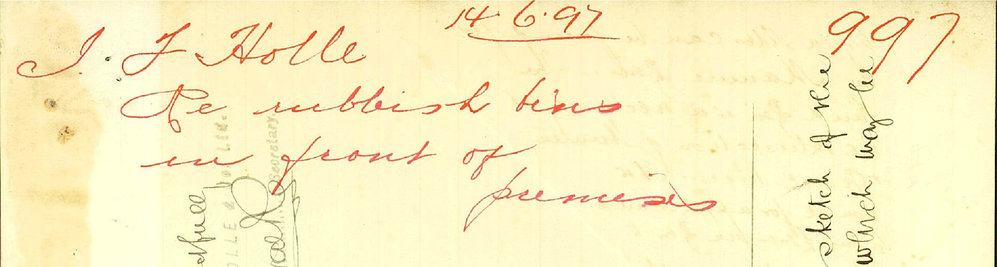 14.6.97
997
J. F Holle
Re rubbish bins
in front of
premises
sketch of the
which may be
Secretary